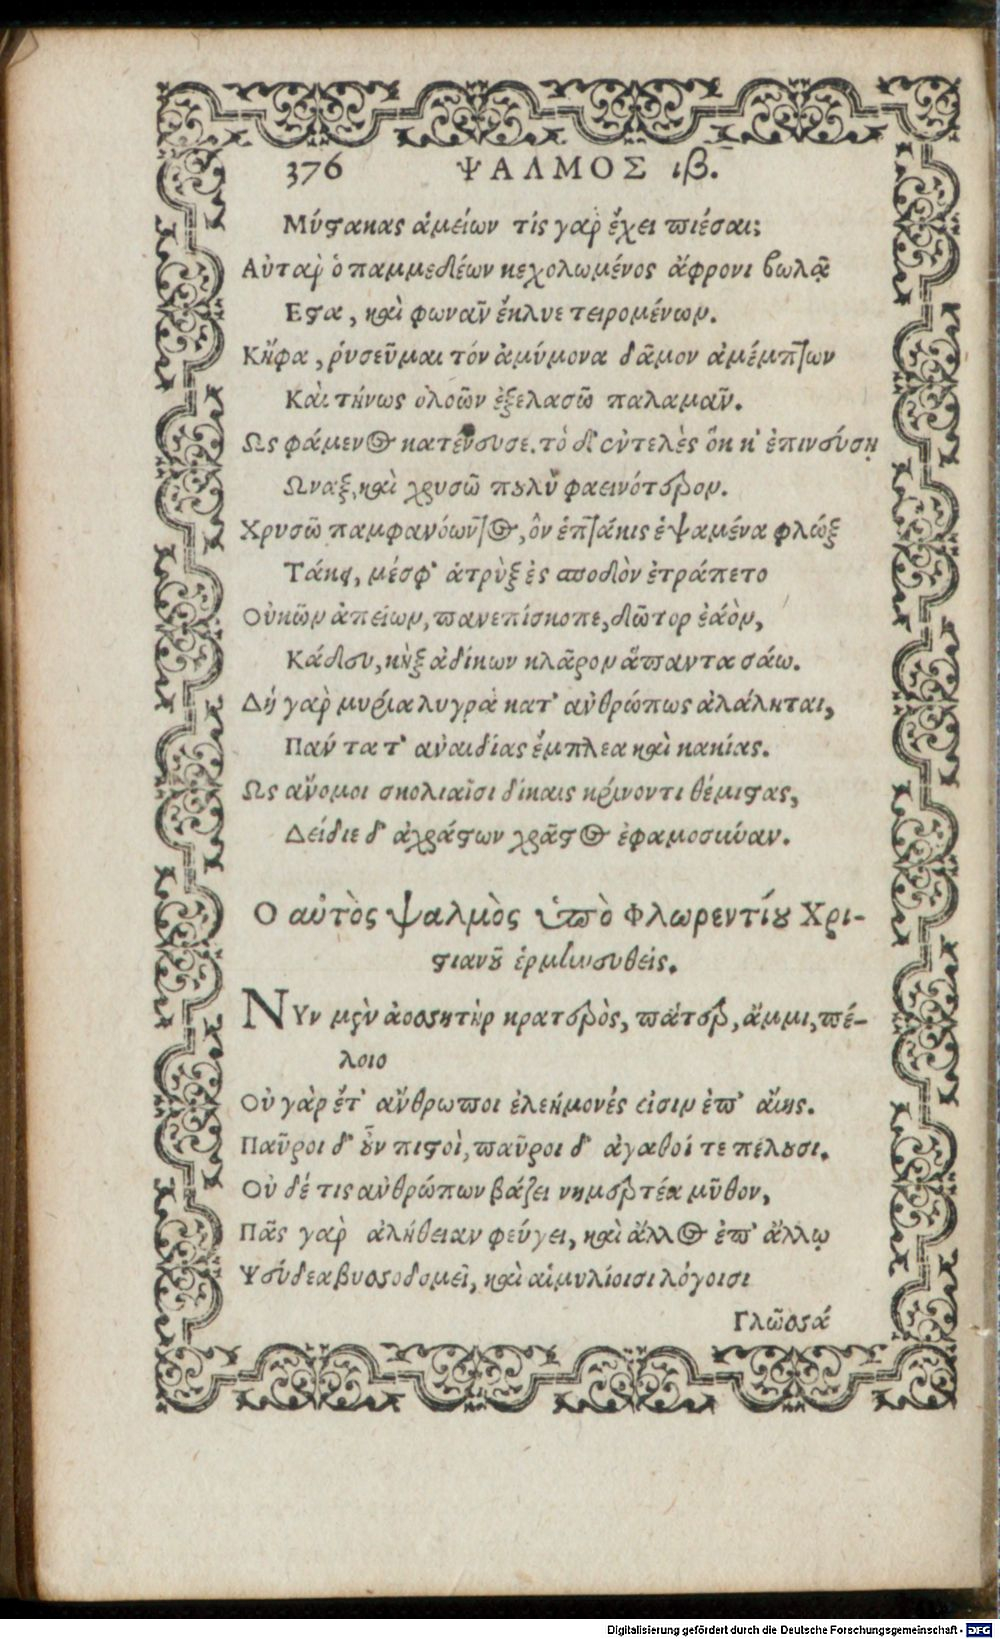 376 ΨΑΛΜΟΣ ιβ.
Μύϛακας ἀμείων τίς γαρ ἔχει πιέσαι;
Αὐταρ ὁ παμμεδέων κεχολωμένος ἄφρονι βωλᾷ
Εϛα, καὶ φωνᾶν ἔκλυε τειρομένων.
Κἤφα, ῥυσεῦμαι τόν ἀμύμονα δᾶμον ἀμέμπτων
Κὰι τήνως ὀλοῶν ἐξελασῶ παλαμᾶν.
Ως φάμενος κατένευσε. τὸ δ' εὐτελὲς ὅκ κ' ἐπινεύσῃ
Ωναξ, καὶ χρυσῶ πουλῦ φαεινότερον.
Χρυσῶ παμφανόωντος, ὃν ἑπτάκις ἑψαμένα φλώξ
Τάκει, μέσφ' ἀτρὺξ ἐς σποδὸν ἐτράπετο
Οὐκῶν ἀπείων, πανεπίσκοπε, δῶτορ ἐάὸν,
Κάδευ, κἠξ ἀδίκων κλᾶρον ἅπαντα σάω.
Δή γαρ μυρία λυγρὰ κατ' ανθρώπως ἀλάληται,
Παν τα τ' αναιδίας ἔμπλεα καὶ κακίας.
Ως ἄνομοι σκολιαῖσι δίκαις κρίνοντι θέμιϛας,
Δείδιε δ' ἀχράϛων χρᾶϛος ἐφαμοσύναν.
Ο αὐτὸς ψαλμὸς ὑπὸ Φλωρεντίου Χρι-
ϛιανοῦ ἑρμηνευθείς.
ΝΥν μὲν ἀοσσητὴρ κρατερὸς, πάτερ, ἄμμι, πέ-
λοιο
Οὐ γὰρ ἔτ' ἄνθρωποι ἐλεήμονές εἰσιν ἐπ' αἴης.
Παῦροι δ' οὖν πιϛοὶ, παῦροι δ' ἀγαθοί τε πέλουσι.
Οὐ δέ τις ανθρώπων βάζει νημερτέα μῦθον,
Πᾶς γαρ ἀλήθειαν φεύγει, καὶ ἄλλος ἐπ' ἄλλῳ
Ψεύδεα βυσσοδομεῖ, καὶ αἱμυλίοισι λόγοισι
Γλῶσσά
Digitalisierung gefördert durch die Deutsche Forschungsgemeinschaft - DFG